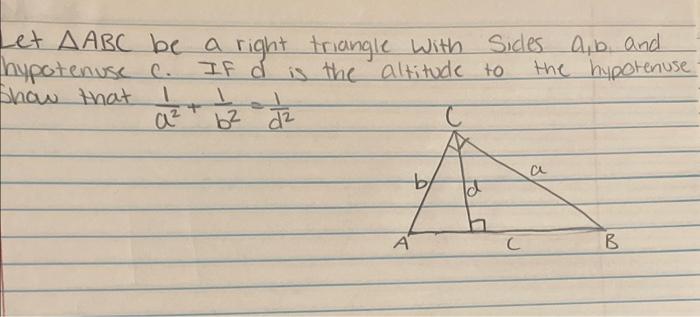 Let △ABC be a right triangle with Sides a,b, and
hypotenuse c. If d is the altitude to the hypotenuse
Show that 1/a² + 1/b² = 1/d²
C
b
d
a
A
c
B